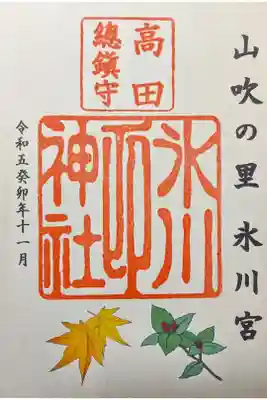 山吹の里 氷川宮
高田
總鎮守
氷川
神社
令和五癸卯年十一月